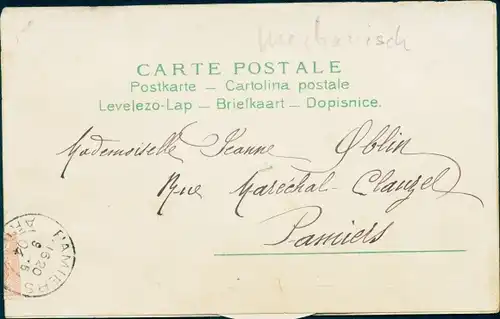 mechanisch
CARTE POSTALE
Postkarte — Cartolina postale
Levelezö-Lap — Briefkaart — Dopisnice.
Mademoiselle Jeanne Oblin
Rue Maréchal-Clauzel
Pamiers
PAMIERS
1620
8 - 5
04